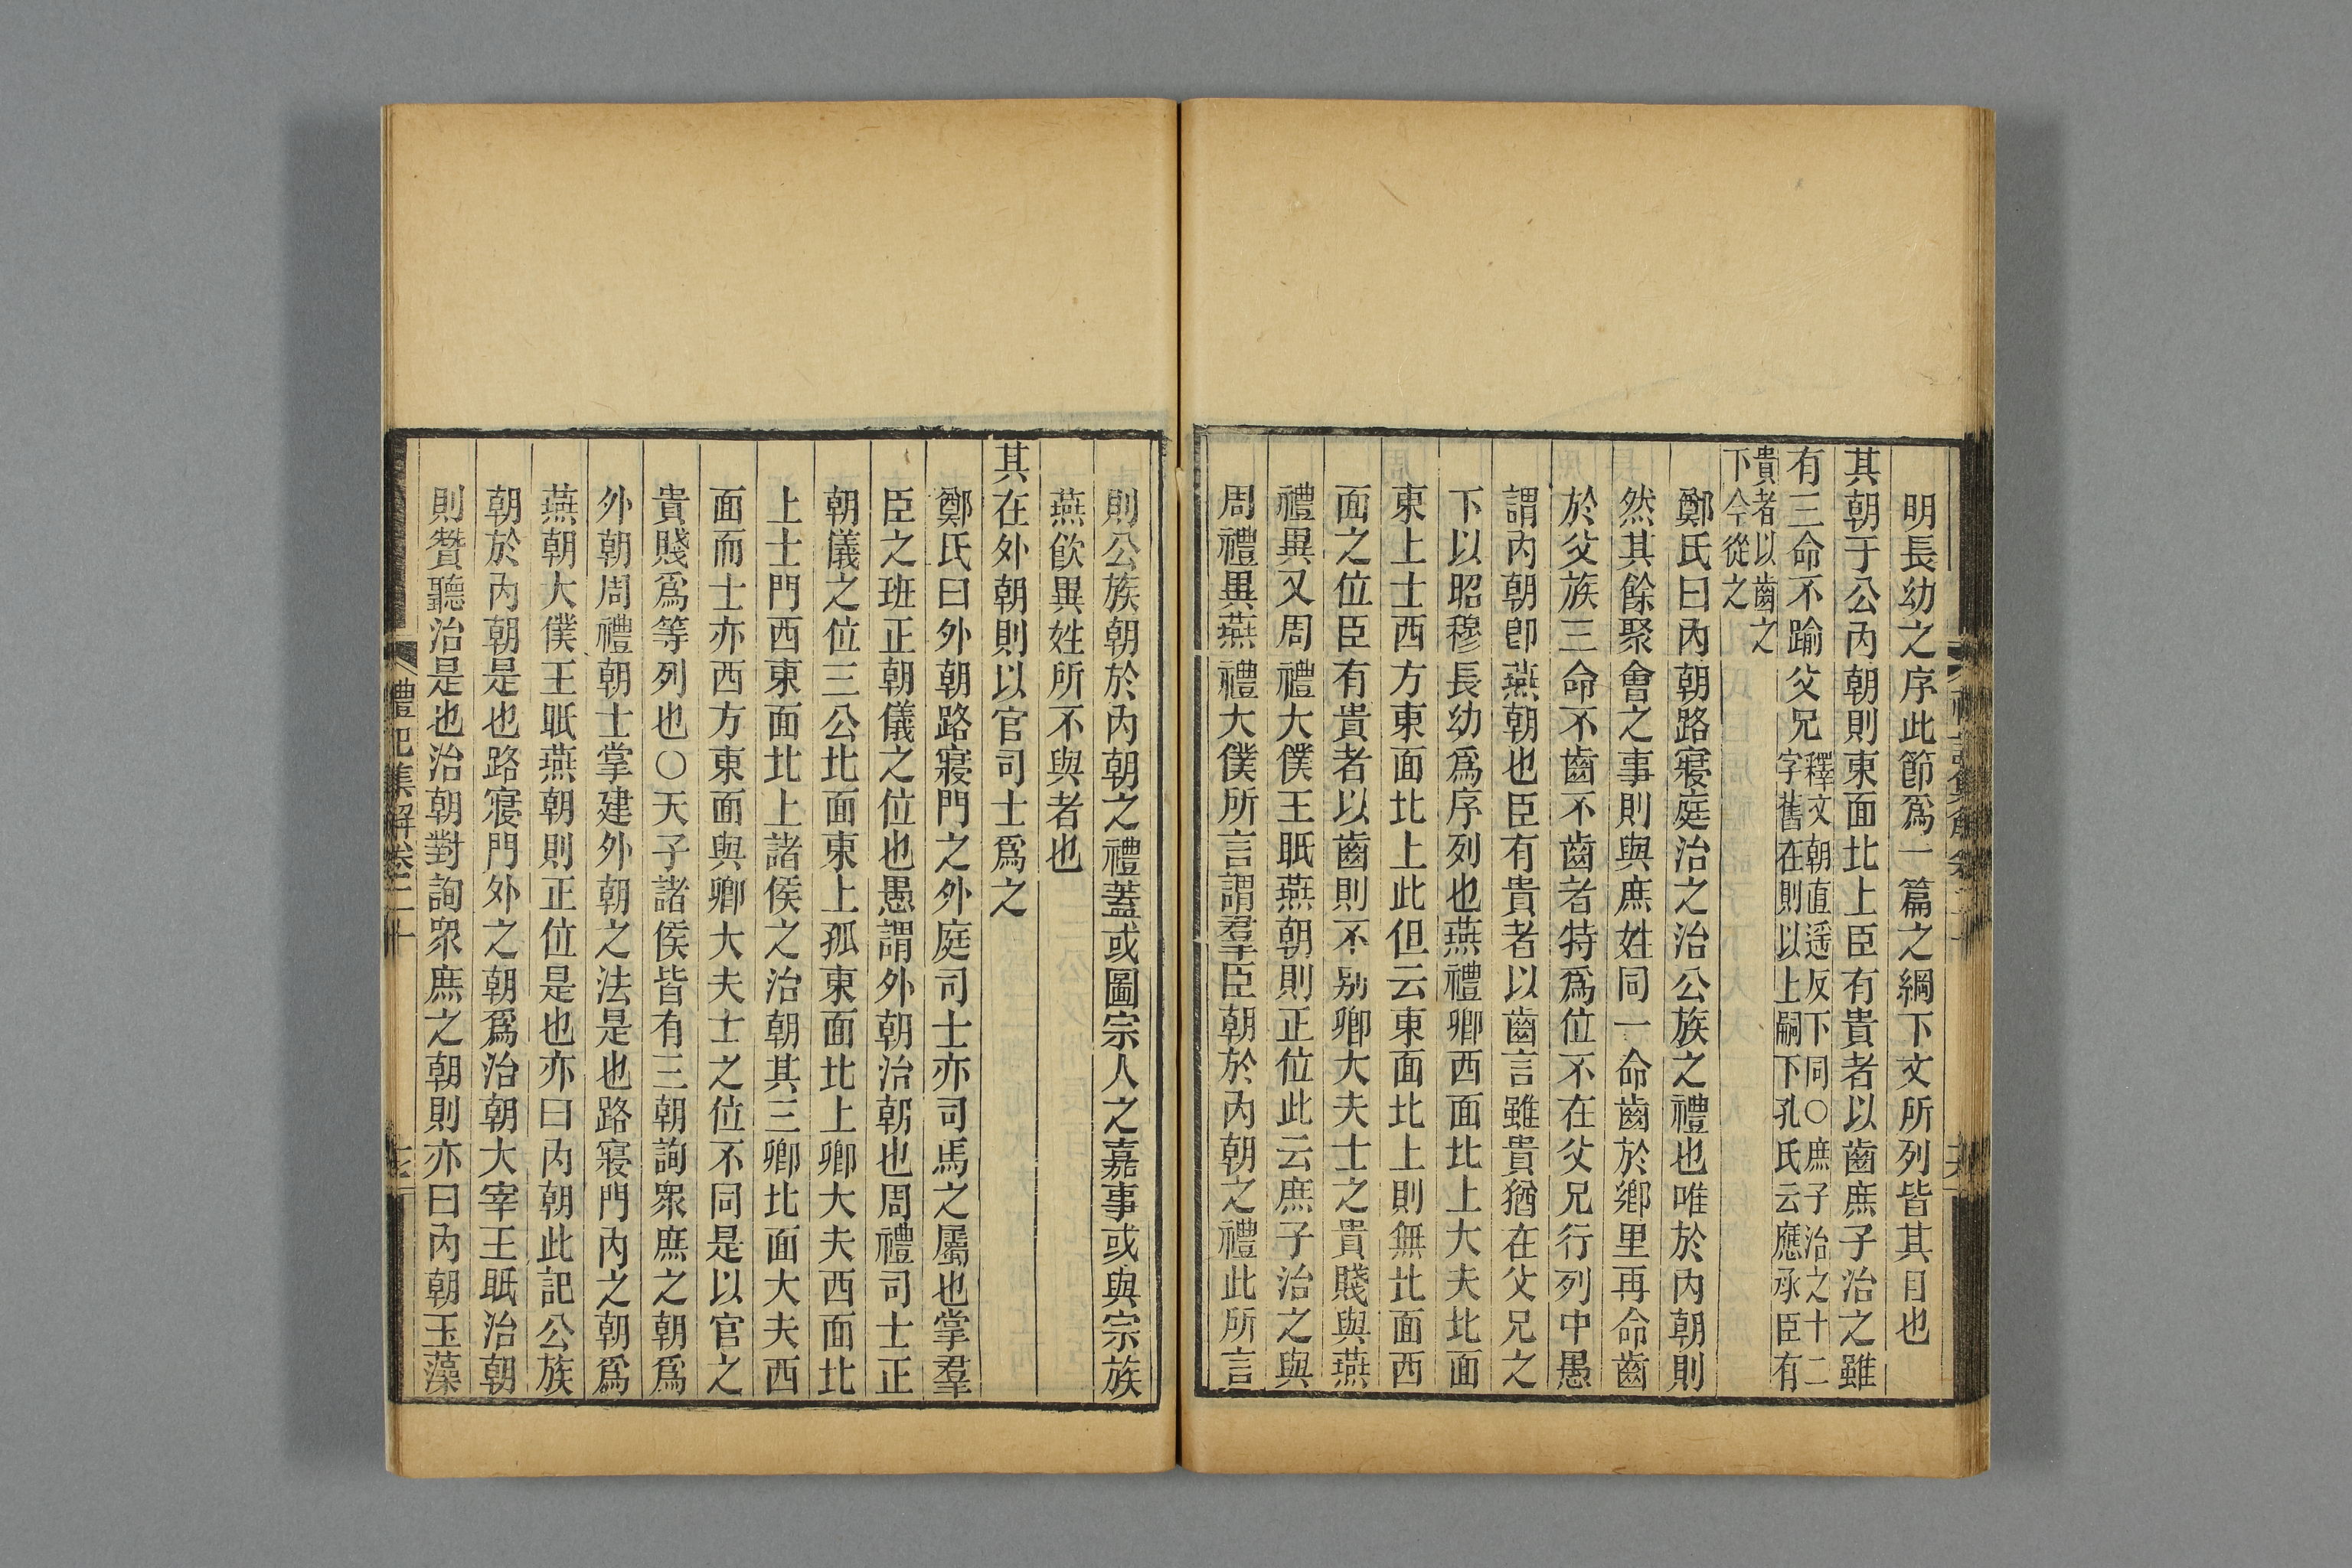 明長幼之序此節爲一篇之綱下文所列皆其目也
其朝于公內朝則東面北上臣有貴者以齒庶子治之雖
有三命不踰父兄釋文朝直遥反下同○庶子治之十二
字舊在則以上嗣下孔氏云應承臣有
貴者以齒之
下今從之
鄭氏曰內朝路寢庭治之治公族之禮也唯於內朝則
然其餘聚會之事則與庶姓同一命齒於鄉里再命齒
於父族三命不齒不齒者特爲位不在父兄行列中愚
謂內朝卽燕朝也臣有貴者以齒言雖貴猶在父兄之
下以昭穆長幼爲序列也燕禮卿西面北上大夫北面
東上士西方東面北上此但云東面北上則無北面西
面之位臣有貴者以齒則不别卿大夫士之貴賤與燕
禮異又周禮大僕王眂燕朝則正位此云庶子治之與
周禮異燕禮大僕所言謂羣臣朝於內朝之禮此所言
則公族朝於內朝之禮蓋或圖宗人之嘉事或與宗族
燕飲異姓所不與者也
其在外朝則以官司士爲之
鄭氏曰外朝路寢門之外庭司士亦司馬之屬也掌羣
臣之班正朝儀之位也愚謂外朝治朝也周禮司士正
朝儀之位三公北面東上孤東面北上卿大夫西面北
上士門西東面北上諸侯之治朝其三卿北面大夫西
面而士亦西方東面與卿大夫士之位不同是以官之
貴賤爲等列也○天子諸侯皆有三朝詢衆庶之朝爲
外朝周禮朝士掌建外朝之法是也路寢門內之朝爲
燕朝大僕王眂燕朝則正位是也亦曰內朝此記公族
朝於內朝是也路寢門外之朝爲治朝大宰王眂治朝
則贊聽治是也治朝對詢衆庶之朝則亦曰內朝玉藻
禮記集解卷二十